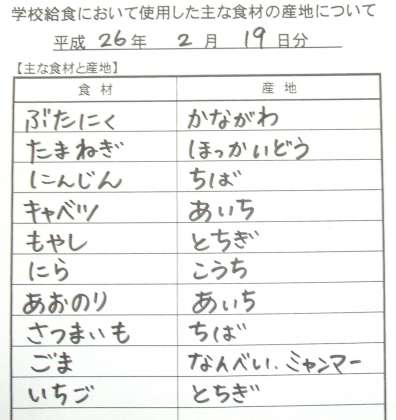 学校給食において使用した主な食材の産地について
平成 26 年 2 月 19 日分
【主な食材と産地】
食 材 産 地
ぶたにく かながわ
たまねぎ ほっかいどう
にんじん ちば
キャベツ あいち
もやし とちぎ
にら こうち
あおのり あいち
さつまいも ちば
ごま なんべい、ミャンマー
いちご とちぎ